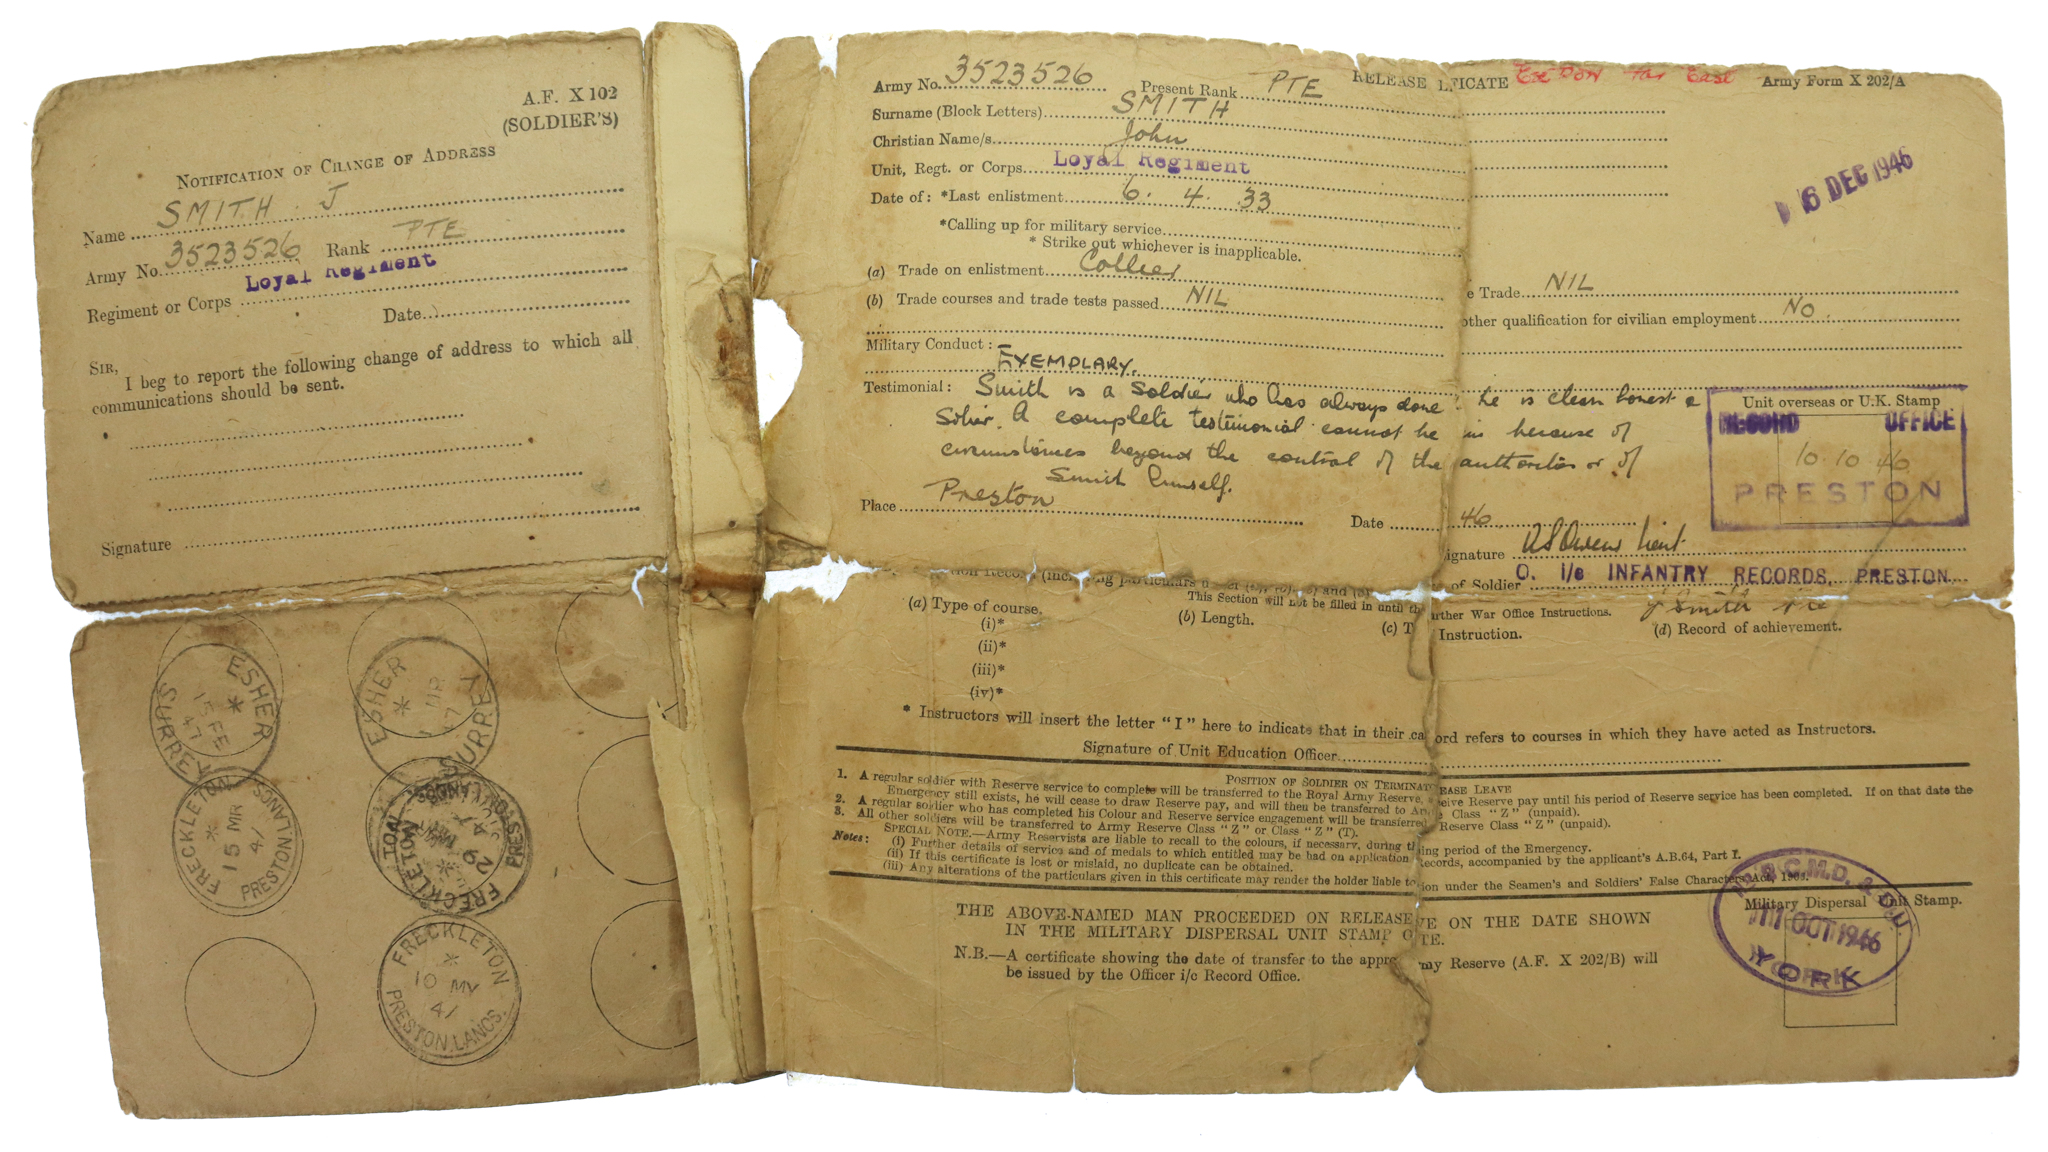 A.F. X 102
(SOLDIER'S)
NOTIFICATION OF CHANGE OF ADDRESS
Name SMITH J
Army No. 3523526 Rank PTE
Regiment or Corps Loyal Regiment
Date
SIR,
I beg to report the following change of address to which all
communications should be sent.
Signature
ESHER
15 FE
47
SURREY
ESHER
MR
SURREY
FRECKLETON
15 MR
PRESTON LANCS
FRECKLETON
PRESTON
29
FRECKLETON
10 MY
PRESTON. LANCS.
RELEASE Far East Army Form X 202/A
Army No. 3523526 Present Rank PTE
Surname (Block Letters) SMITH
Christian Name/s John
Unit, Regt. or Corps Loyal Regiment
16 DEC 1946
Date of: *Last enlistment 6. 4. 33
*Calling up for military service
* Strike out whichever is inapplicable.
(a) Trade on enlistment Collier
e Trade NIL
(b) Trade courses and trade tests passed NIL
other qualification for civilian employment No.
Military Conduct: EXEMPLARY.
Testimonial: Smith is a soldier who has always done he is clean honest &
sober. A complete testimonial cannot be because of
circumstances beyond the control of the authorities or of
Smith himself.
Unit overseas or U.K. Stamp
RECORD OFFICE
10 10 46
PRESTON
Place Preston
Date 46
ignature Lieut
O. i/c INFANTRY RECORDS, PRESTON
of Soldier J Smith Pte
This Section will not be filled in until th urther War Office Instructions.
(a) Type of course. (b) Length. (c) T Instruction. (d) Record of achievement.
(i)*
(ii)*
(iii)*
(iv)*
* Instructors will insert the letter "I" here to indicate that in their ca ord refers to courses in which they have acted as Instructors.
Signature of Unit Education Officer
POSITION OF SOLDIER ON TERMINAT EASE LEAVE
1. A regular soldier with Reserve service to complete will be transferred to the Royal Army Reserve, eive Reserve pay until his period of Reserve service has been completed. If on that date the
Emergency still exists, he will cease to draw Reserve pay, and will then be transferred to Ar Class "Z" (unpaid).
2. A regular soldier who has completed his Colour and Reserve service engagement will be transferred Reserve Class "Z" (unpaid).
3. All other soldiers will be transferred to Army Reserve Class "Z" or Class "Z" (T).
SPECIAL NOTE.—Army Reservists are liable to recall to the colours, if necessary, during th ing period of the Emergency.
Notes: (i) Further details of service and of medals to which entitled may be had on application ecords, accompanied by the applicant's A.B.64, Part I.
(ii) If this certificate is lost or mislaid, no duplicate can be obtained.
(iii) Any alterations of the particulars given in this certificate may render the holder liable to ion under the Seamen's and Soldiers' False Characters Act,
THE ABOVE-NAMED MAN PROCEEDED ON RELEASE VE ON THE DATE SHOWN
IN THE MILITARY DISPERSAL UNIT STAMP O TE.
N.B.—A certificate showing the date of transfer to the appr my Reserve (A.F. X 202/B) will
be issued by the Officer i/c Record Office.
Military Dispersal Unit Stamp.
11 OCT 1946
YORK